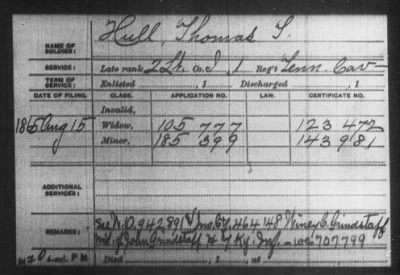 NAME OF SOLDIER: Hull, Thomas S.
SERVICE: Late rank 2 Lt. Co. I, 1 Reg't Tenn. Cav
TERM OF SERVICE: Enlisted , 1 Discharged , 1
DATE OF FILING. CLASS. APPLICATION NO. LAW. CERTIFICATE NO.
Invalid,
1865 Aug 15 Widow, 105 777 123 472
Minor, 185 399 143 981
ADDITIONAL SERVICES:
See W.O. 942891 Winey C. Grindstaff
REMARKS: Wid. of John Grindstaff H 4 Ky. Inf. - wc 707799
Died , 1 , at